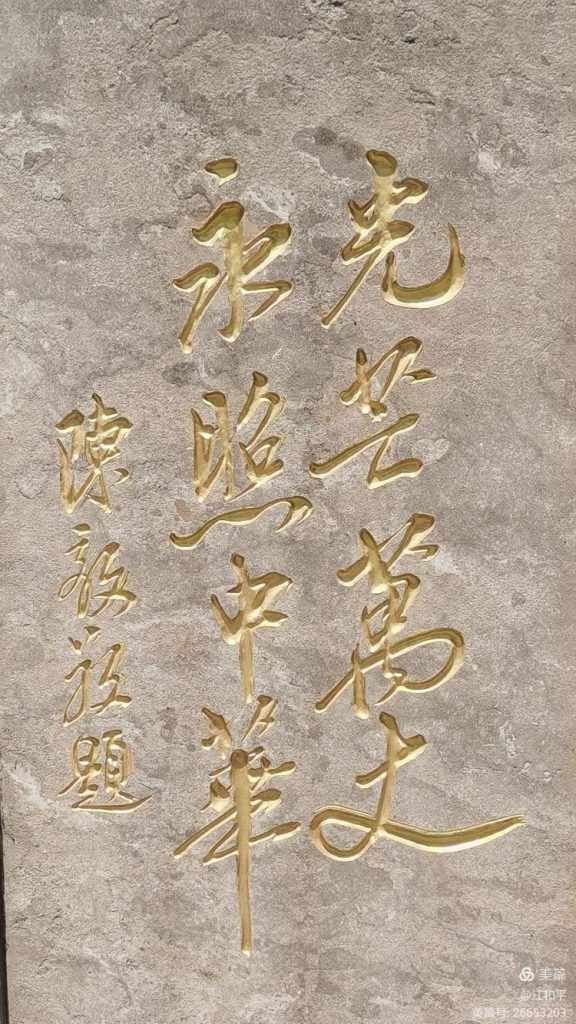 光芒萬丈
永照中華
陳毅敬題
美篇
@江和平
美篇号: 26653203